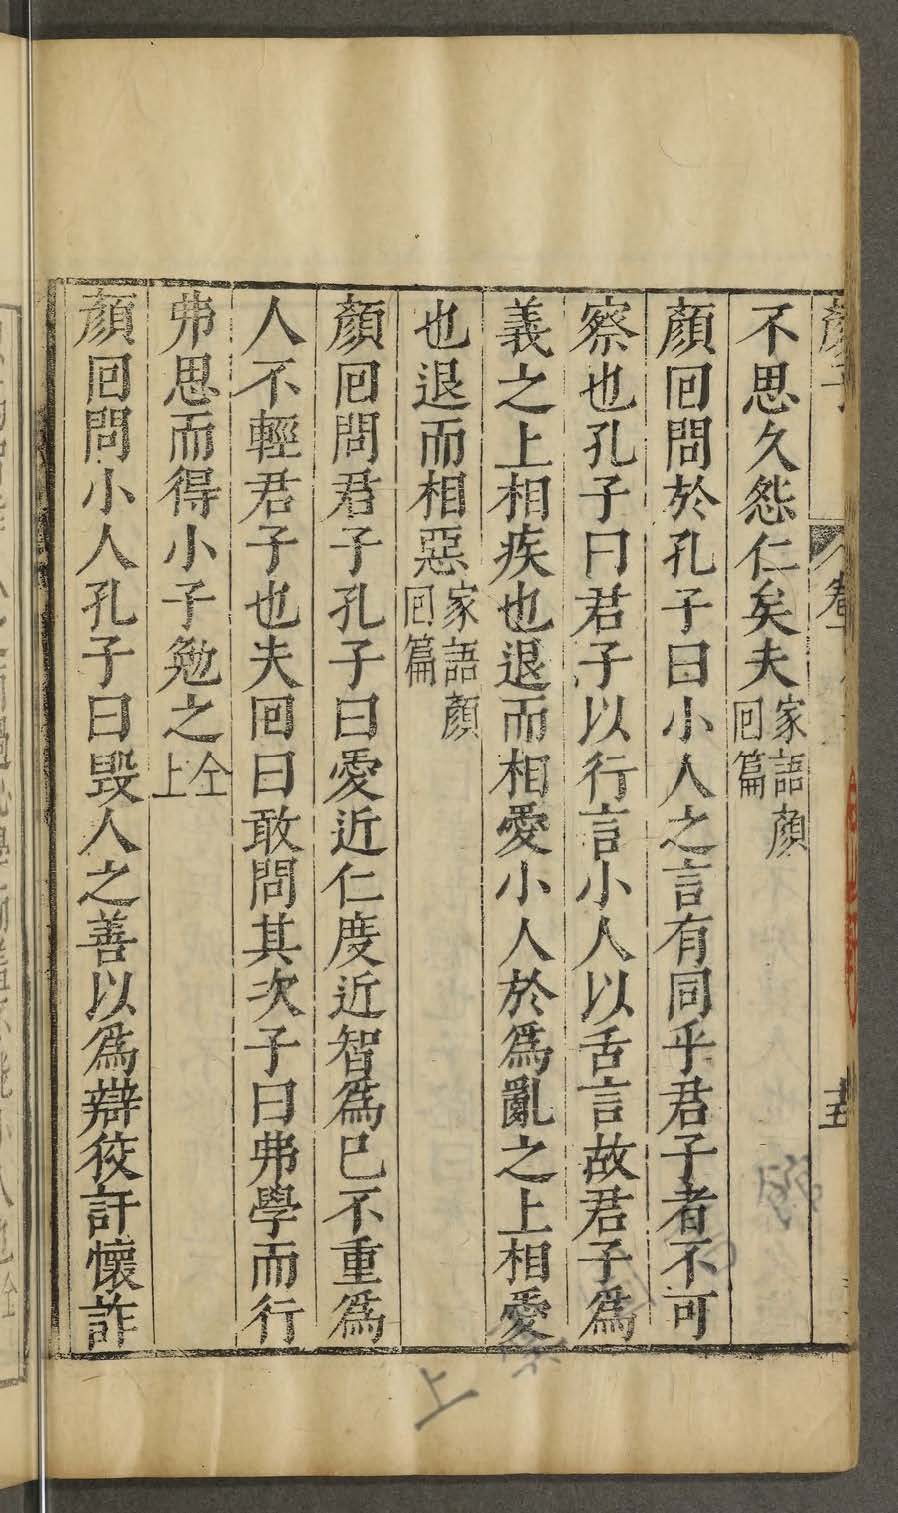 顏子
卷
不思久怨仁矣夫家語顏回篇
顏回問於孔子曰小人之言有同乎君子者不可
察也孔子曰君子以行言小人以舌言故君子爲
義之上相疾也退而相愛小人於爲亂之上相愛
也退而相惡家語顏回篇
顏回問君子孔子曰愛近仁度近智爲已不重爲
人不輕君子也夫回曰敢問其次子曰弗學而行
弗思而得小子勉之仝上
顏回問小人孔子曰毀人之善以爲辯狡訐懷詐
上